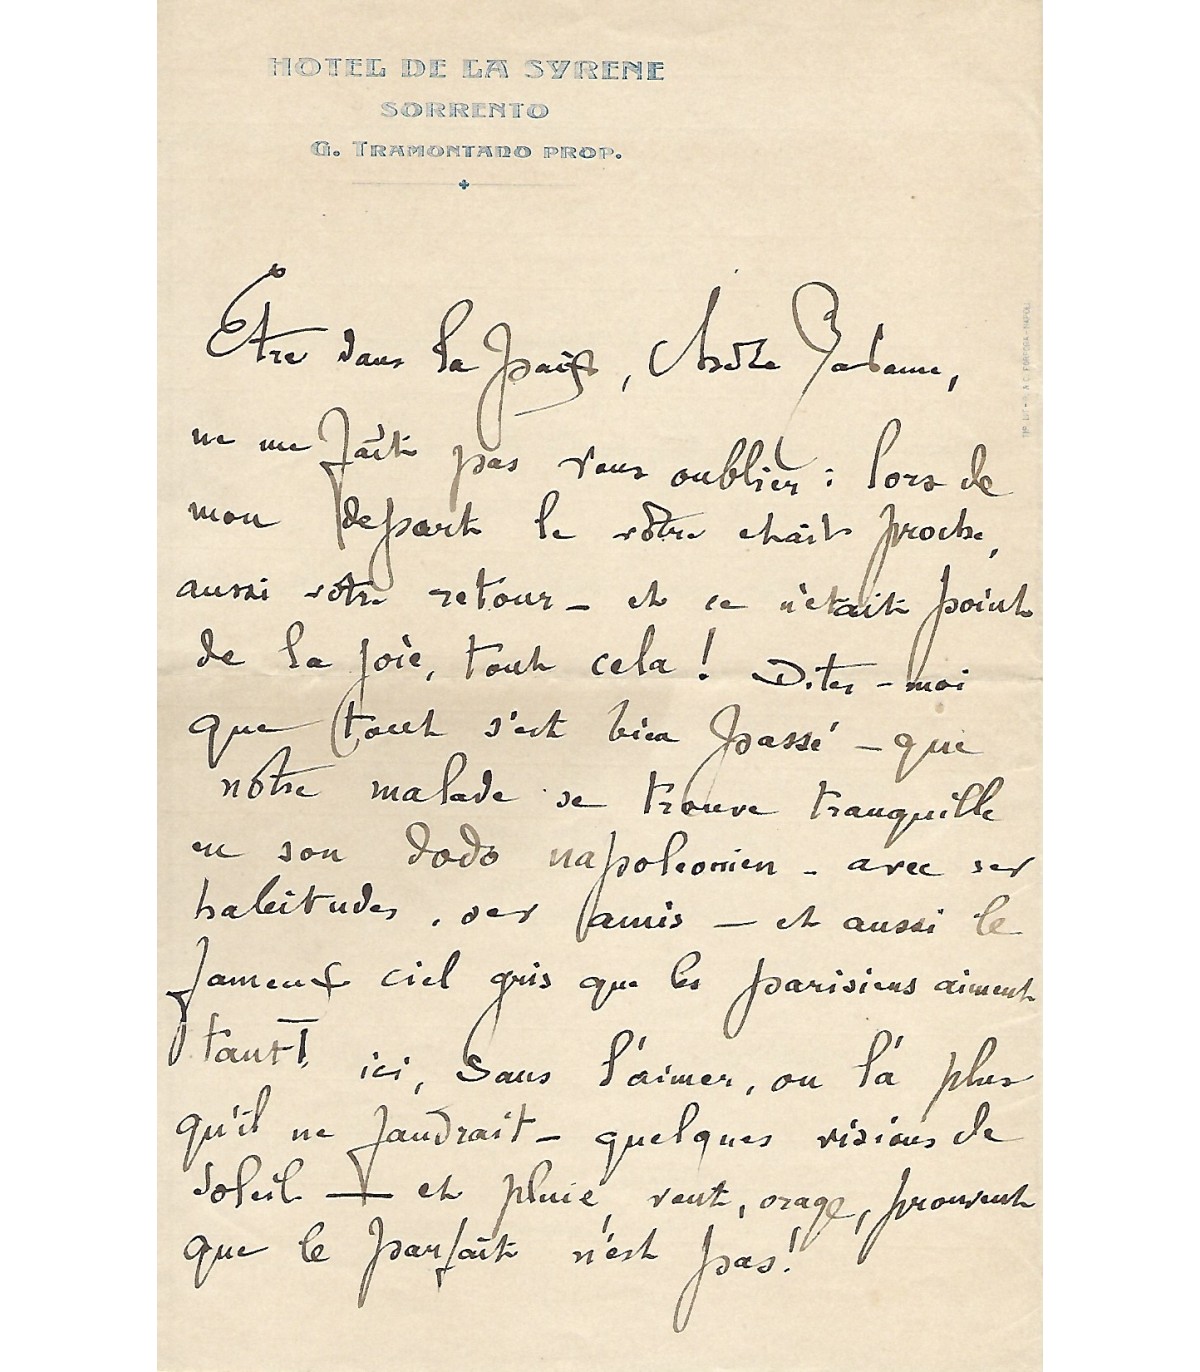 HOTEL DE LA SYRENE
SORRENTO
G. TRAMONTANO PROP.
Etre dans la paix, Chère Madame,
ne me fait pas vous oublier : lors de
mon départ le vôtre etait proche,
aussi votre retour _ et ce n'était point
de la joie, tout cela ! Dites-moi
que tout s'est bien passé - que
notre malade se trouve tranquille
en son dodo napoleonien - avec ses
habitudes, ses amis - et aussi le
fameux ciel gris que les parisiens aiment
tant
ici, sans l'aimer, on l'a plus
qu'il ne faudrait - quelques visions de
soleil — et pluie, vent, orage, prouvent
que le parfait n'est pas !